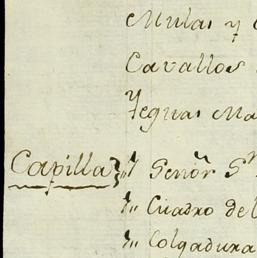 Mulas y
Cavallos
Yeguas Ma
Capilla Señor Sn
Cuadro del
Colgadura